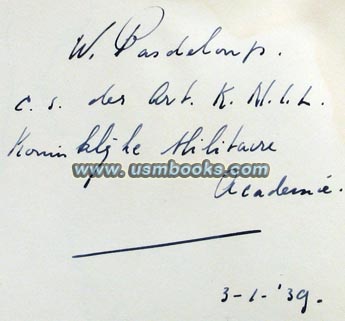 W. Pasdeloup.
c.s. der Art. K.N.I.L.
Koninklijke Militaire
www.usmbooks.com
Academie.
3-1-'39.